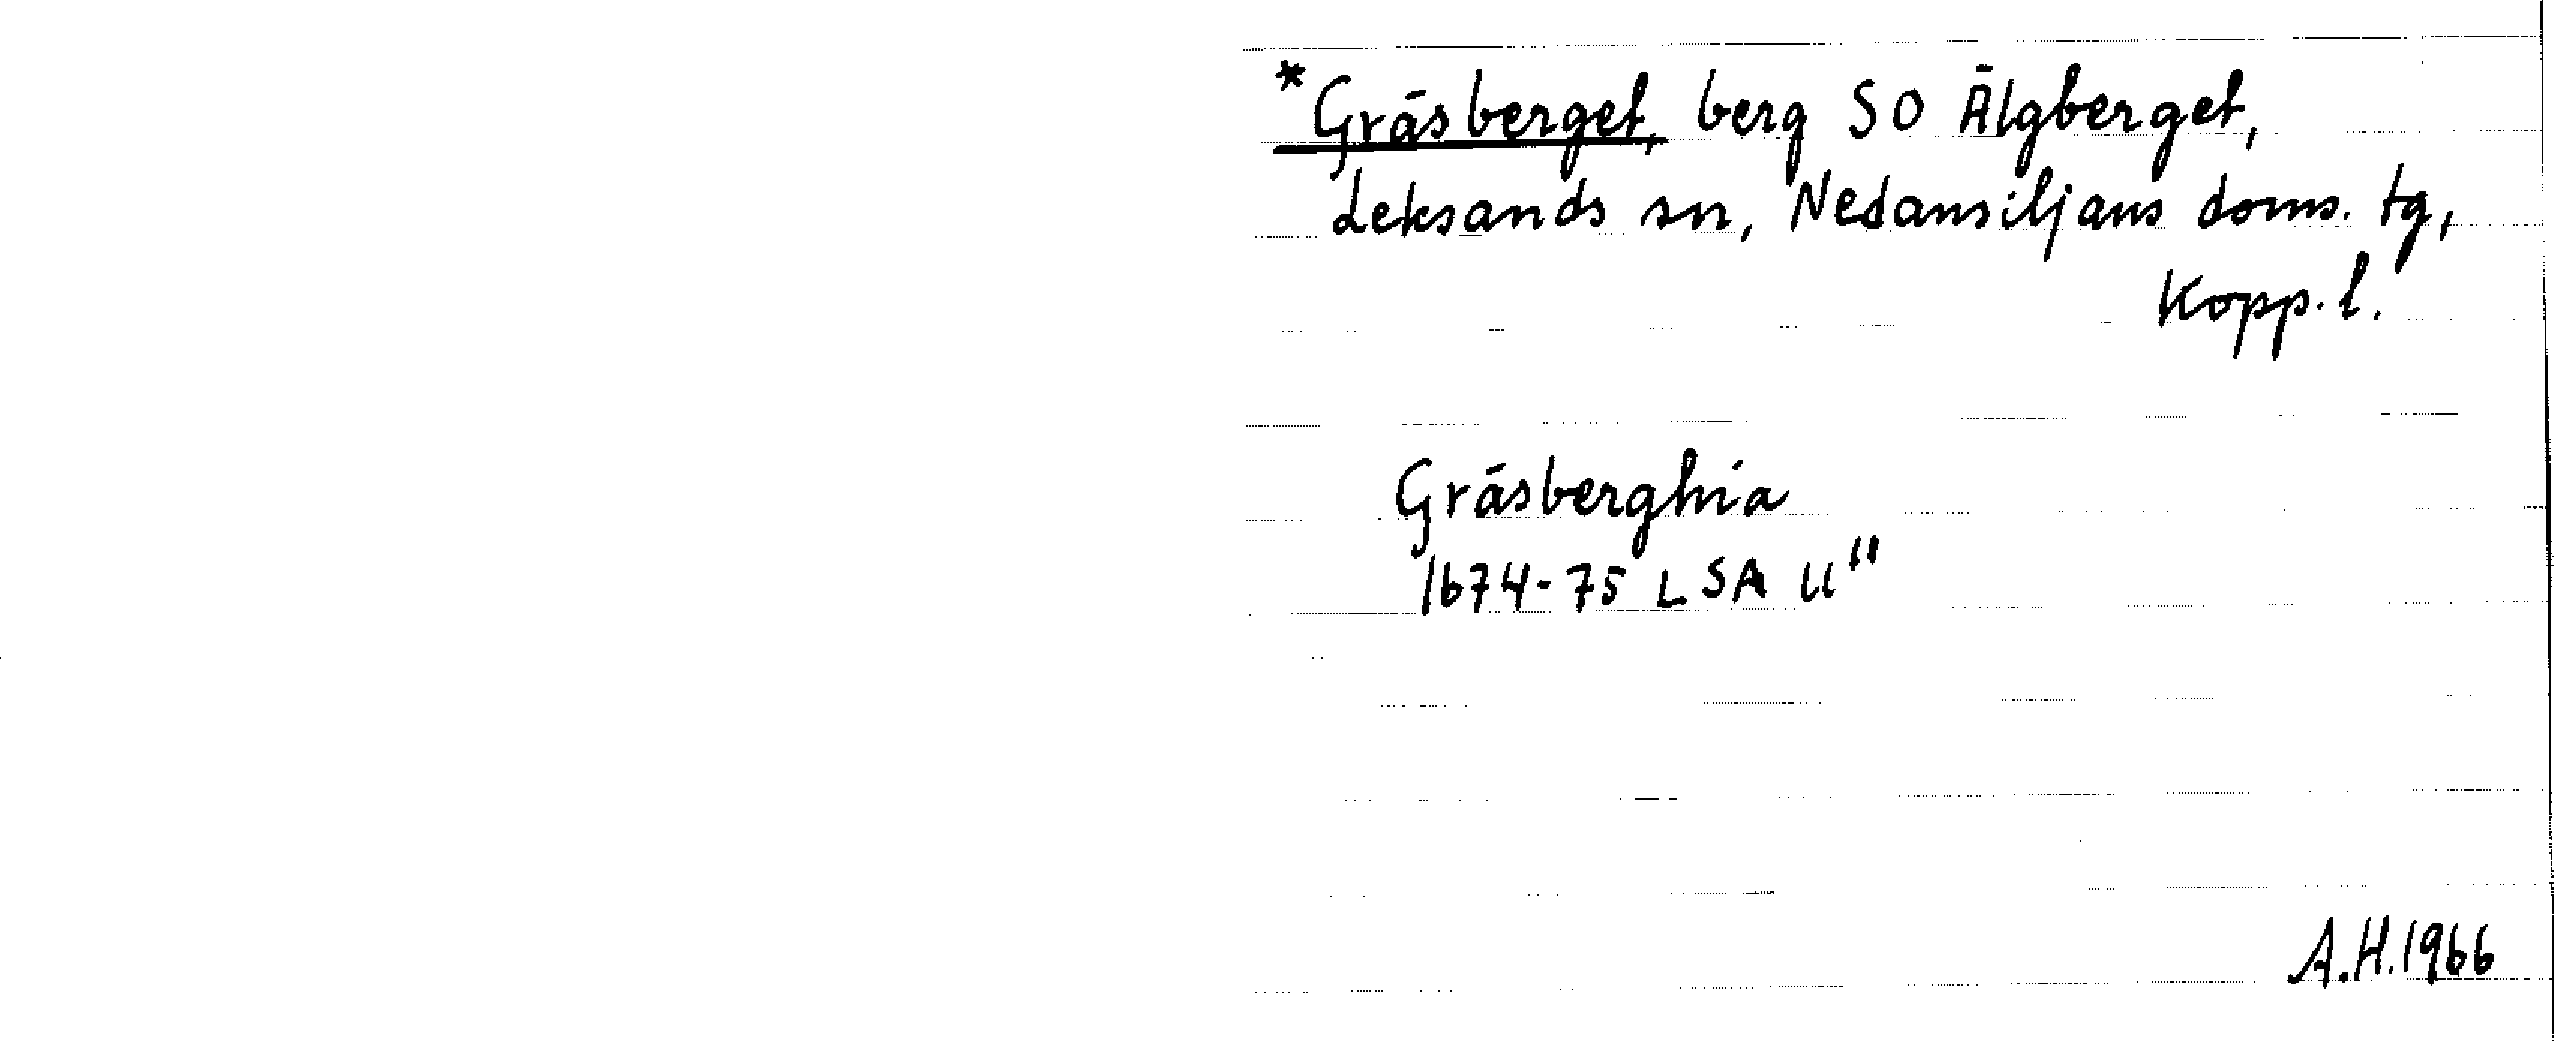 *Gräsberget, berg SO Älgberget,
Leksands sn, Nedansiljans doms. tg,
Kopp. l.
Gräsberghia
1674-75 LSA U"
A.H.1966